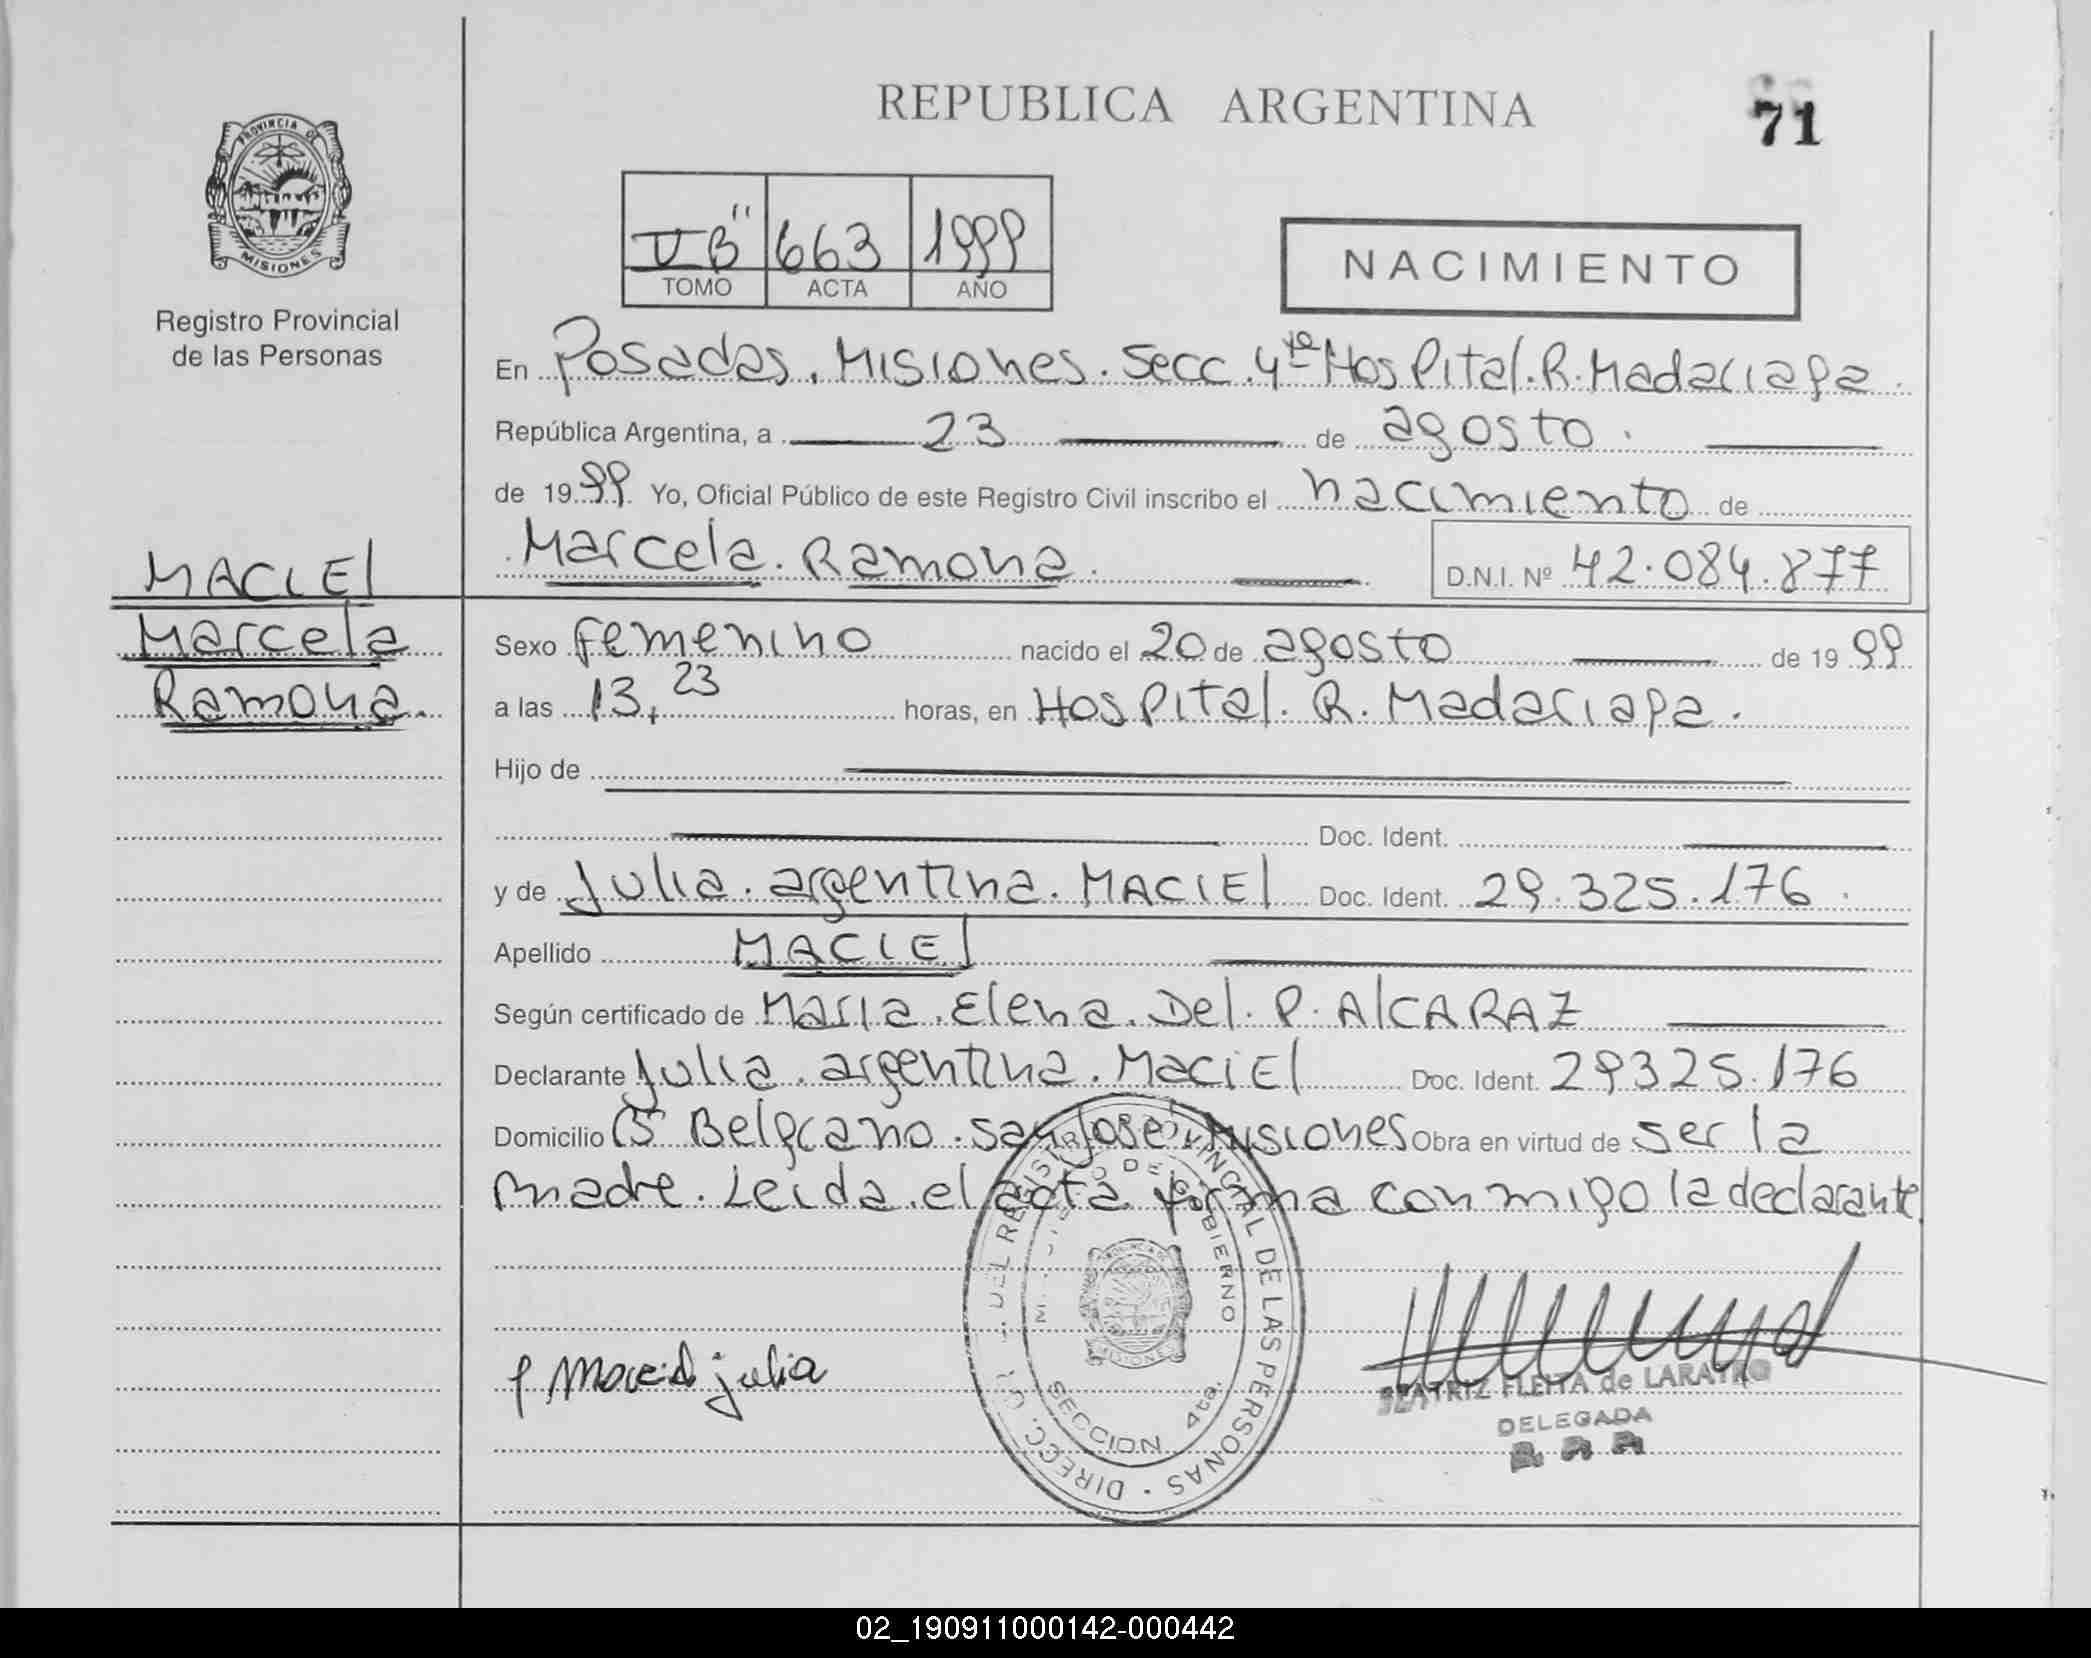 REPUBLICA ARGENTINA
71
PROVINCIA DE
MISIONES
Registro Provincial
de las Personas
663 1999
TOMO ACTA AÑO
NACIMIENTO
En Posadas. Misiones. Secc. 4ta Hospital. R. Madariaga.
República Argentina, a 23 de agosto.
de 1999 Yo, Oficial Público de este Registro Civil inscribo el nacimiento de
Marcela. Ramona. D.N.I. Nº 42.084.877
MACIEl
Marcela
Ramona.
Sexo femenino nacido el 20 de agosto de 1999
a las 13,23 horas, en Hospital. R. Madariaga.
Hijo de
Doc. Ident.
y de Julia. argentina. MACIEl Doc. Ident. 29.325.176.
Apellido MACIEl
Según certificado de Maria. Elena. Del. P. AlCARAZ
Declarante Julia. argentina. MaciEl Doc. Ident. 29325.176
Domicilio Bº Belgrano. San José. Misiones Obra en virtud de ser la
madre. Leida. el acta firma conmigo la declarante
DIRECC. DEL REGISTRO PROVINCIAL DE LAS PERSONAS
DE GOBIERNO
MISIONES
SECCION 4ta.
Maciel julia
BEATRIZ FLEITA de
DELEGADA
02_190911000142-000442